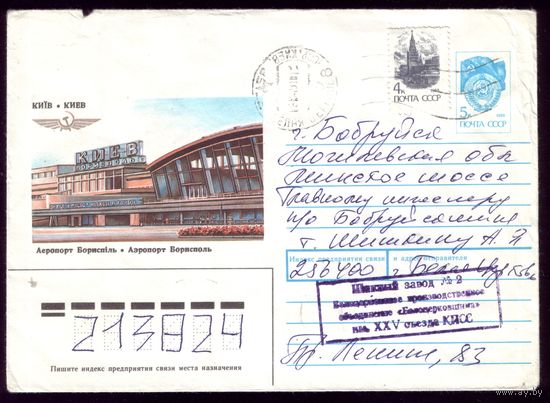 КИЇВ • КИЕВ
КИЕВ
4к
ПОЧТА СССР
5к
ПОЧТА СССР
Аеропорт Бориспіль • Аэропорт Борисполь
г. Бобруйск
Могилевская обл
Минское шоссе
Главному инженеру
п/о Бобруйскшина
т. Шишкину А.
Индекс предприятия связи и адрес отправителя
256400 г. Белая Церковь
Шинный завод № 2
производственное
объединение «Белоцерковшина»
им. XXV съезда КПСС
Пр. Ленина, 83
213824
Пишите индекс предприятия связи места назначения
www.ay.by